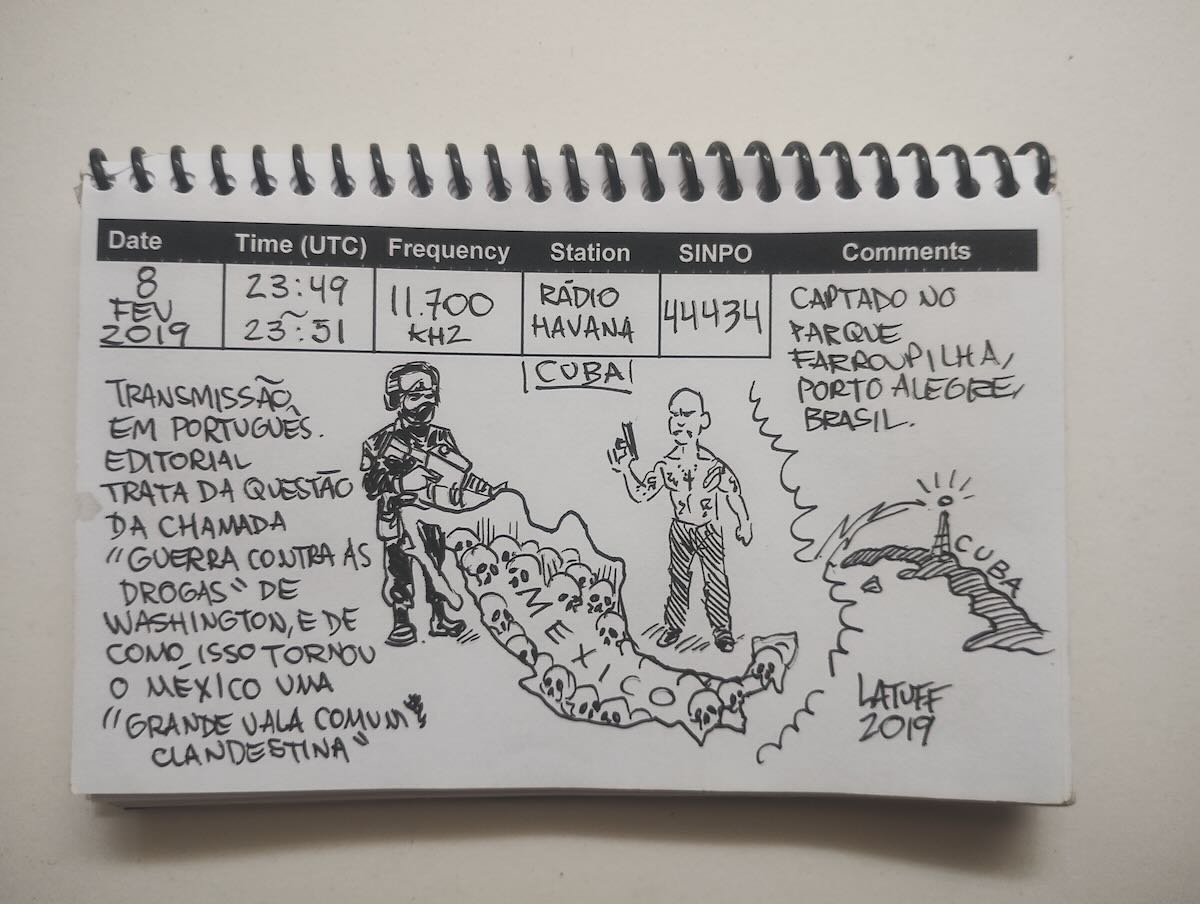 Date Time (UTC) Frequency Station SINPO Comments
8
FEV
2019
23:49
~
23:51
11.700
KHZ
RÁDIO
HAVANA
CUBA
44434
CAPTADO NO
PARQUE
FARROUPILHA,
PORTO ALEGRE,
BRASIL.
TRANSMISSÃO
EM PORTUGUÊS.
EDITORIAL
TRATA DA QUESTÃO
DA CHAMADA
"GUERRA CONTRA ÀS
DROGAS" DE
WASHINGTON, E DE
COMO ISSO TORNOU
O MÉXICO UMA
"GRANDE VALA COMUM
CLANDESTINA"
MEXICO
CUBA
LATUFF
2019